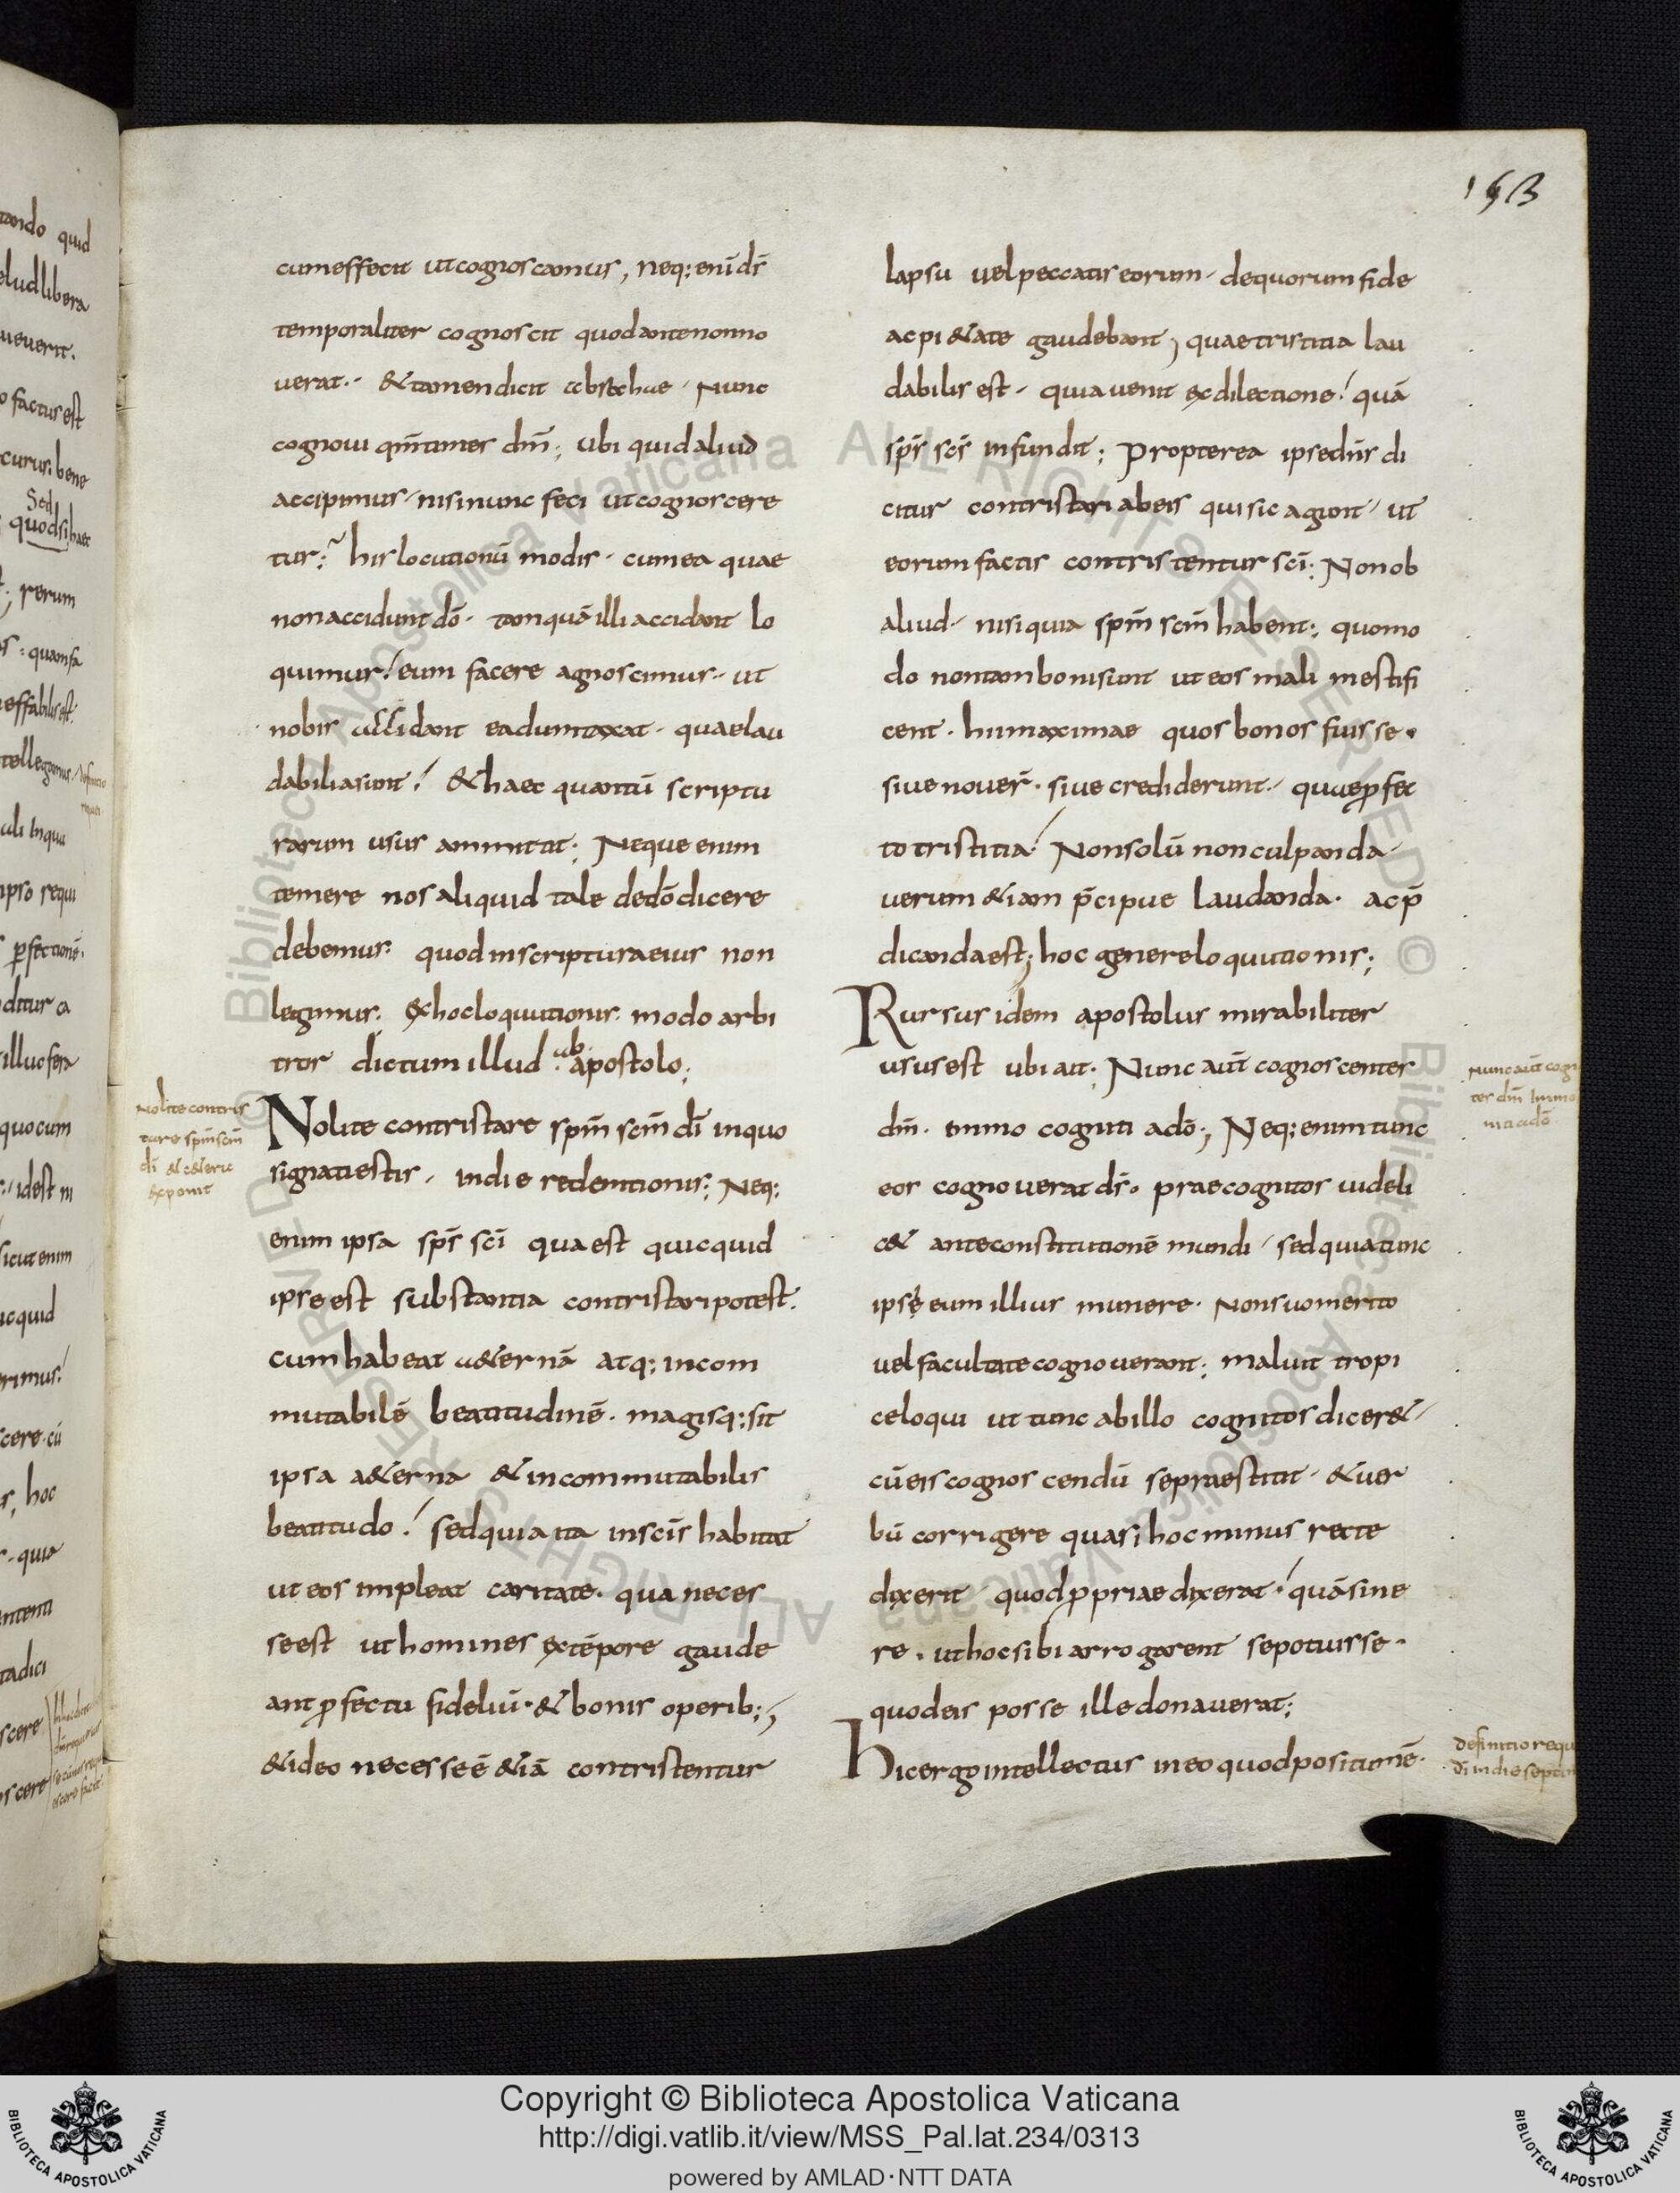 153
cum effecit ut cognoscamus, neq: enī dī
temporaliter cognoscit quod ante non no
uerat. & tamen dicit abrahae. Nunc
cognoui qm̄ times dm̄; ubi quid aliud
accipimus. nisi nunc feci ut cognoscere
tur; his locutionū modis. cum ea quae
non accidunt dō. tanquā illi accidant lo
quimur. eum facere agnoscimus. ut
nobis accidant ea dumtaxat. quae lau
dabilia sunt. & haec quantū scriptu
rarum usus ammittit; Neque enim
temere nos aliquid tale de dō dicere
debemus. quod in scriptura eius non
legimus. ex hoc loquutionis modo arbi
tror dictum illud ab apostolo;
Nolite contristare spm̄ scm̄ dī in quo
signati estis. in die redemtionis; Neq:
enim ipsa sps̄ scī qua est quicquid
ipse est substantia contristari potest.
cum habeat a&ernā atq: incom
mutabilē beatitudinē. magisq: sit
ipsa a&erna & incommutabilis
beatitudo. sed quia ita in scīs habitat
ut eos impleat caritate. qua neces
se est ut homines ex tēpore gaude
ant ꝓfectu fideliū. & bonis operib:;
& ideo necesse ē &iā contristentur
Nolite contris
tare spm̄ scm̄
dī & c&era
exponit
lapsu uel peccatis eorum. de quorum fide
ac pi&ate gaudebant, quae tristitia lau
dabilis est. quia uenit ex dilectione. quā
sps̄ scs̄ infundit; Propterea ipse dn̄s di
citur contristari ab eis qui sic agunt. ut
eorum factis contristentur scī; Non ob
aliud. nisi quia spm̄ scm̄ habent; quomo
do non tam boni sunt ut eos mali mestifi
cent. hi maximae quos bonos fuisse.
siue nouer̄. siue crediderunt. quae ꝓfec
to tristitia. Non solū non culpanda
uerum &iam p̄cipue laudanda. ac p̄
dicanda est; hoc genere loquutionis;
Rursus idem apostolus mirabiliter
usus est ubi ait; Nunc aut̄ cognoscentes
dm̄. emmo cogniti a dō; Neq: enim tunc
eos cognouerat ds̄. praecognitos uideli
c& ante constitutionē mundi. sed quia tunc
ipsę eum illius munere. Non suo merito
uel facultate cognouerant; maluit tropi
ce loqui ut tunc ab illo cognitos dicer&
cū eis cognoscendū se praestitit. & uer
bū corrigere quasi hoc minus recte
dixerit quod ꝓpriae dixerat. quā sine
re. ut hoc sibi arrogarent se potuisse.
quod eis posse ille donauerat;
Hic ergo intellectus in eo quod positum ē.
Nunc aut̄ cogn
tes dm̄ Immo
niti a dō
definitio requ
dī in die septi
Copyright © Biblioteca Apostolica Vaticana
http://digi.vatlib.it/view/MSS_Pal.lat.234/0313
powered by AMLAD·NTT DATA
BIBLIOTECA APOSTOLICA VATICANA
BIBLIOTECA APOSTOLICA VATICANA